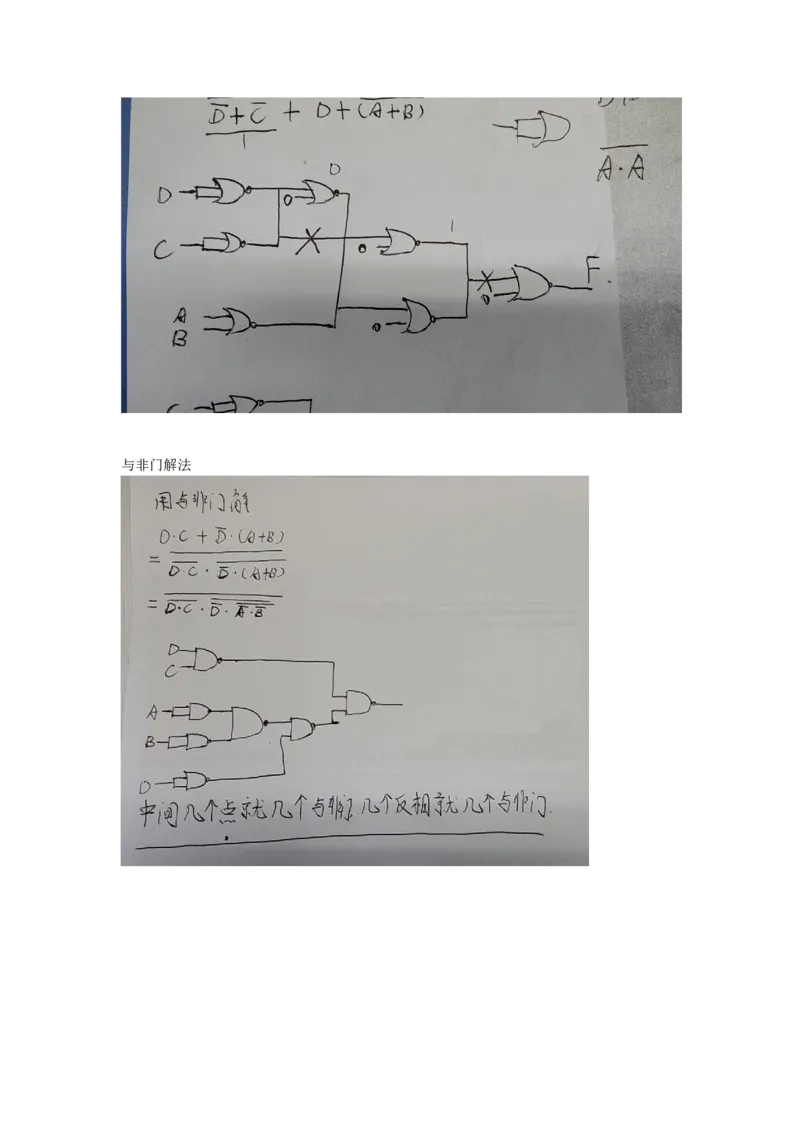 D̅+C̅ + D+(A+B)
1
A·A
0
D
0
C
0
1
F
0
A
B
0
C
与非门解法
用与非门解
D·C + D̅·(A+B)
= D·C · D̅·(A+B)
= D·C · D̅ · A̅·B̅
D
C
A
B
D
中间几个点就几个与非门几个反相就几个与非门.